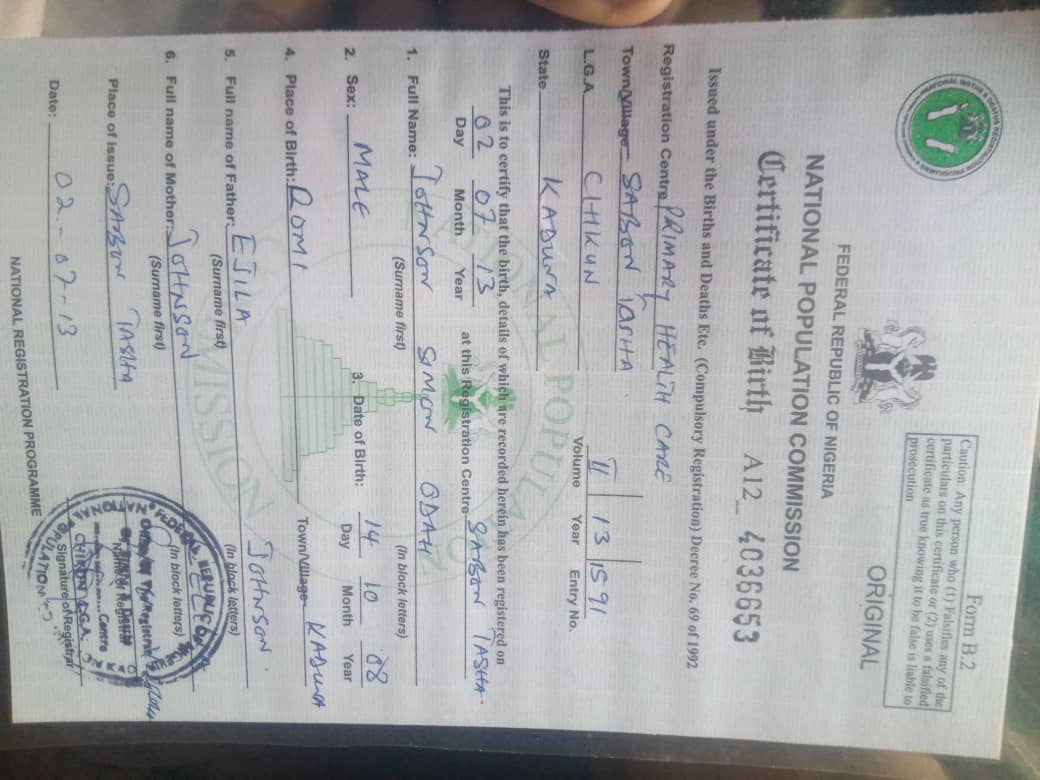 Form B.2
Caution: Any person who (1) Falsifies any of the
particulars on this certificate or (2) uses a falsified
certificate as true knowing it to be false is liable to
prosecution
ORIGINAL
FEDERAL REPUBLIC OF NIGERIA
NATIONAL POPULATION COMMISSION
Certificate of Birth A12_ 4036653
Issued under the Births and Deaths Etc. (Compulsory Registration) Decree No. 69 of 1992
Registration Centre PRIMARY HEALTH CARE
Town/Village SABON TASHA
L.G.A CHIKUN
State KADUNA
II 13 1591
Volume Year Entry No.
This is to certify that the birth, details of which are recorded herein has been registered on
02 07 13 at this Registration Centre SABON TASHA
Day Month Year
1. Full Name: JOHNSON SIMON ODAH
(Surname first) (In block letters)
2. Sex: MALE 3. Date of Birth: 14 10 08
Day Month Year
4. Place of Birth: ROMI Town/Village KADUNA
5. Full name of Father: EJILA JOHNSON.
(Surname first) (In block letters)
6. Full name of Mother: JOHNSON
(Surname first) (In block letters)
Place of Issue: SABON TASHA
Name of Registrar
Date: 02-07-13
Signature of Registrar
CHIKUN L.G.A.
NATIONAL REGISTRATION PROGRAMME